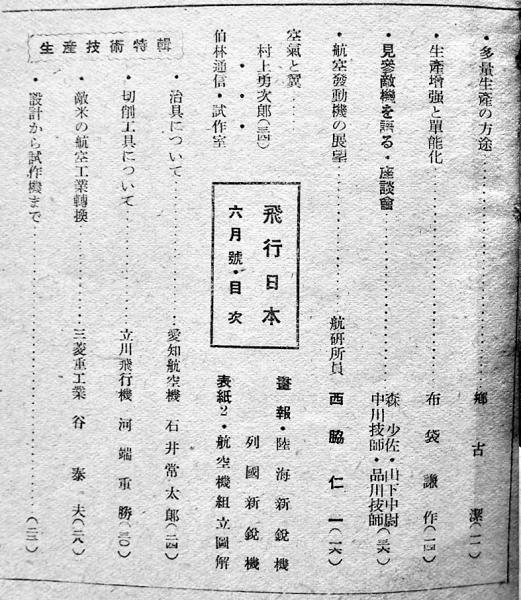 ・多量生產の方途……鄕古潔(一一)
・生產增强と單能化……布袋讓作(一四)
・見參敵機を語る・座談會……森少佐・山下中尉
中川技師・品川技師(三六)
・航空發動機の展望……航硏所員 西脇仁一(一六)
空氣と翼……村上勇次郎(三四)
伯林通信・試作室
飛行日本
六月號・目次
畫報・陸海新銳機
列國新銳機
表紙2・航空機組立圖解
生產技術特輯
・治具について……愛知航空機 石井常太郎(二四)
・切削工具について……立川飛行機 河端重勝(三〇)
・敵米の航空工業轉換……三菱重工業 谷泰夫(二八)
・設計から試作機まで……(二二)